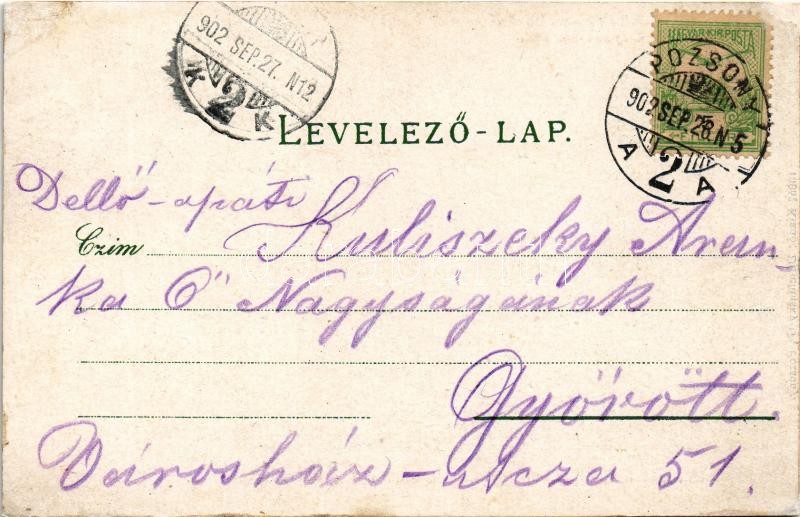 902 SEP. 27. N12
2
K K
MAGYAR KIR. POSTA
POZSONY 1
902 SEP. 28. N 5
A 2 A
LEVELEZŐ-LAP.
Dellő-apáti Kuliszeky Aran-
Czim
ka Ő Nagyságának
Győrött.
Városház-utcza 51.